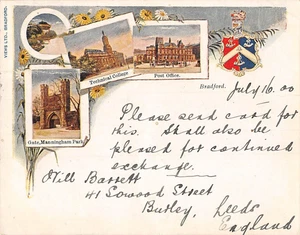 VIEWS LTD., BRADFORD.
Technical College
Post Office.
Gate, Manningham Park
Bradford, July 16. 00
Please send card for
this. Shall also be
pleased for continued
exchange.
Will Barrett
41 Sowood Street
Burley, Leeds
England